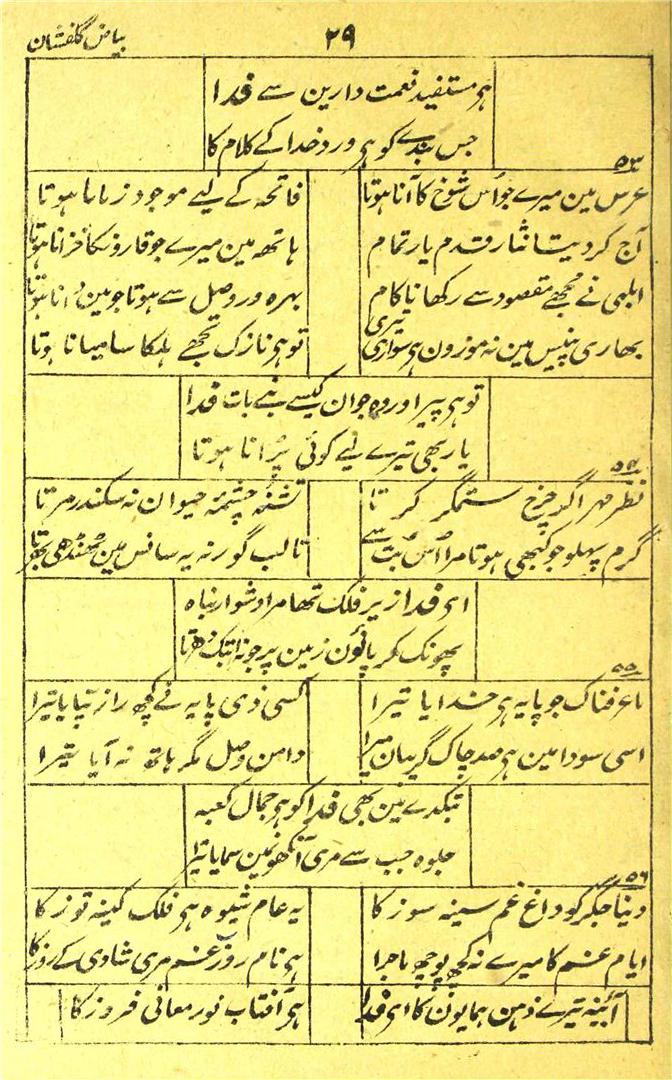 بیاض گلفشان
۲۹
ہی مستفید نعمت دارین سے فدا
جس بندے کو ہی ورد خدا کے کلام کا
۵۳
عرس مین میرے جو اُس شوخ کا آنا ہوتا
فاتحہ کے لیے موجود زمانا ہوتا
آج کر دیتا نثار قدم یار تمام
ہاتھ مین میرے جو قارون کا خزانا ہوتا
ابلہی نے مجھے مقصود سے رکھا ناکام
بہرہ ور وصل سے ہوتا جو مین دانا ہوتا
بھاری پنیس مین نہ موزون ہی سواری تیری
تو ہی نازک تجھے ہلکا سا میانا ہوتا
تو ہی پیر اور وہ جوان کیسے بنے بات فدا
یار بھی تیرے لیے کوئی پُرانا ہوتا
۵۴
نظر مہر اگر چرخ ستمگر کرتا
تشنۂ چشمۂ حیوان نہ سکندر مرتا
گرم پہلو جو کبھی ہوتا مرا اُس بُت سے
تا لب گور نہ یہ سانس مین ٹھنڈھی بھرتا
ای فدا زیر فلک تھا مرا دشوار نباہ
پھونک کر پانؤن زمین پر جو نہ ابتک دھرتا
۵۵
ماعرفناک جو پایہ ہی خدایا تیرا
کسی ذی پایہ نے کچھ راز نپایا تیرا
اسی سودا مین ہی صد چاک گریبان میرا
دامن وصل مگر ہاتھ نہ آیا تیرا
بتکدے مین بھی فدا کو ہی جمال کعبہ
جلوہ جب سے مری آنکھونمین سمایا تیرا
۵۶
دینا جگر کو داغ غم سینہ سوز کا
یہ عام شیوہ ہی فلک کینہ توز کا
ایام غم کا میرے نہ کچھ پوچھ ماجرا
ہی نام روز غم مری شادی کے روز کا
آئینہ تیرے ذہن ہمایون کا ای فدا
ہی آفتاب نور معانی فروز کا